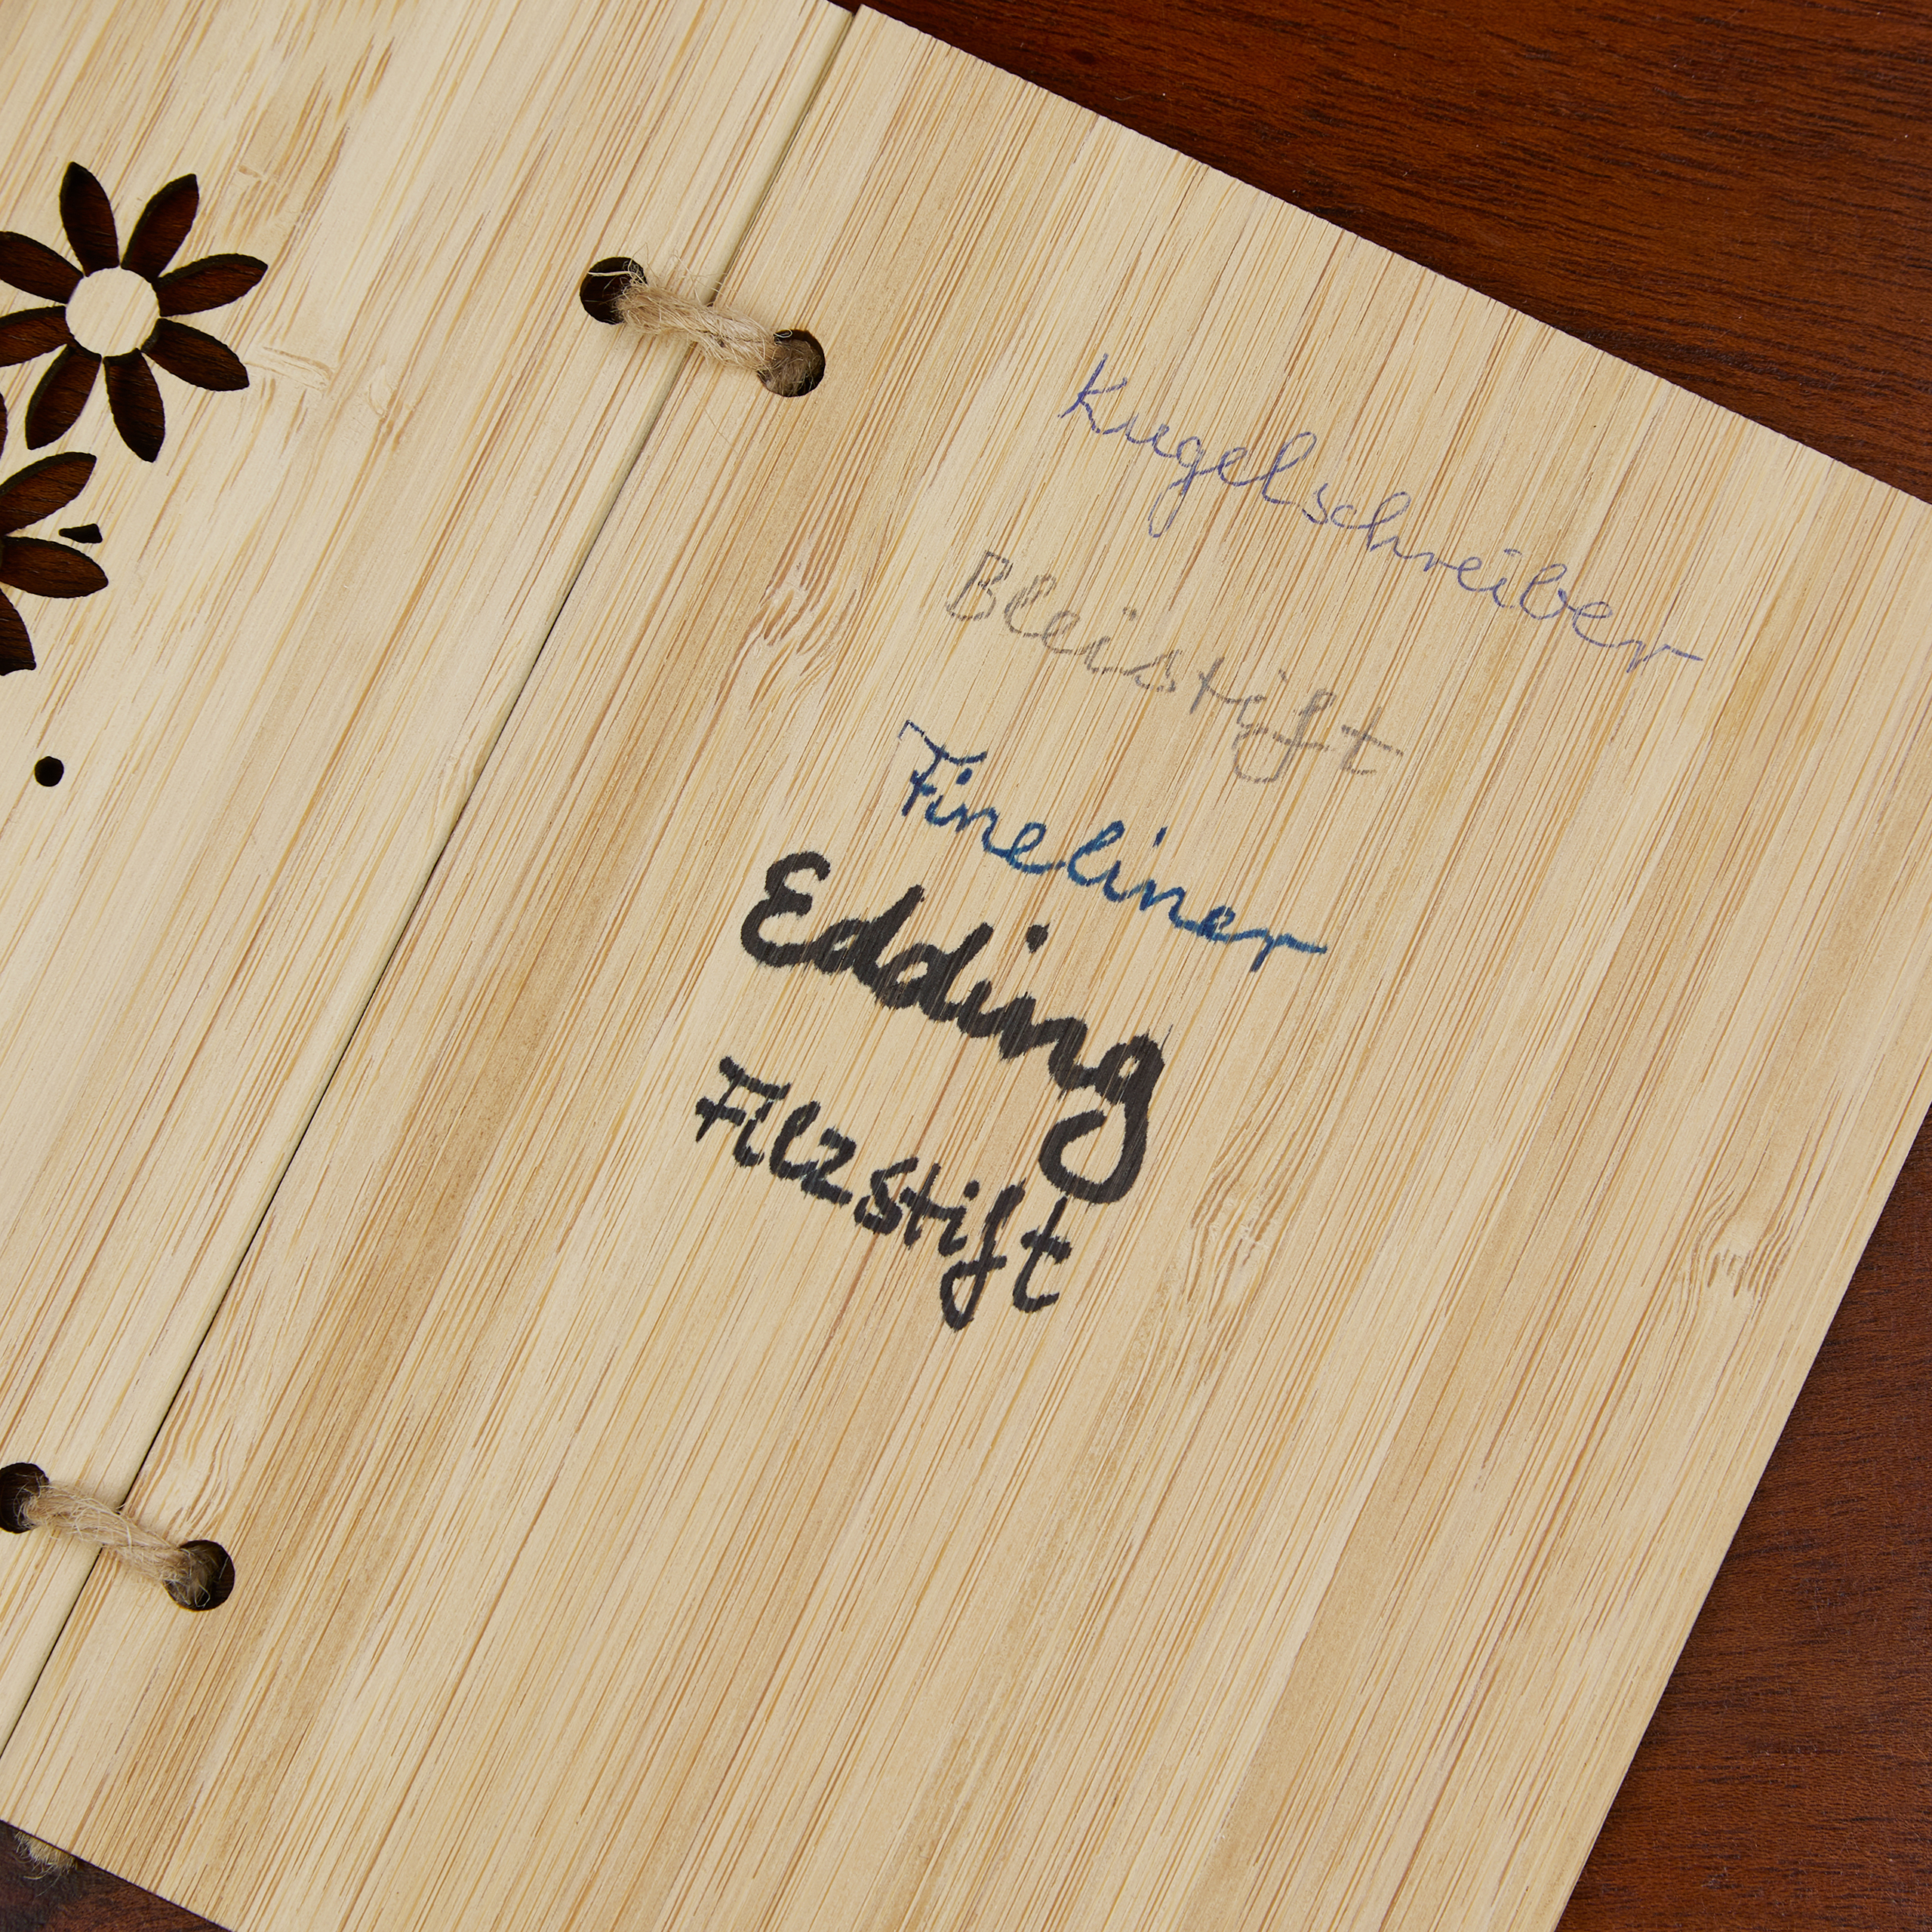 Kugelschreiber
Bleistift
Fineliner
Edding
Filzstift